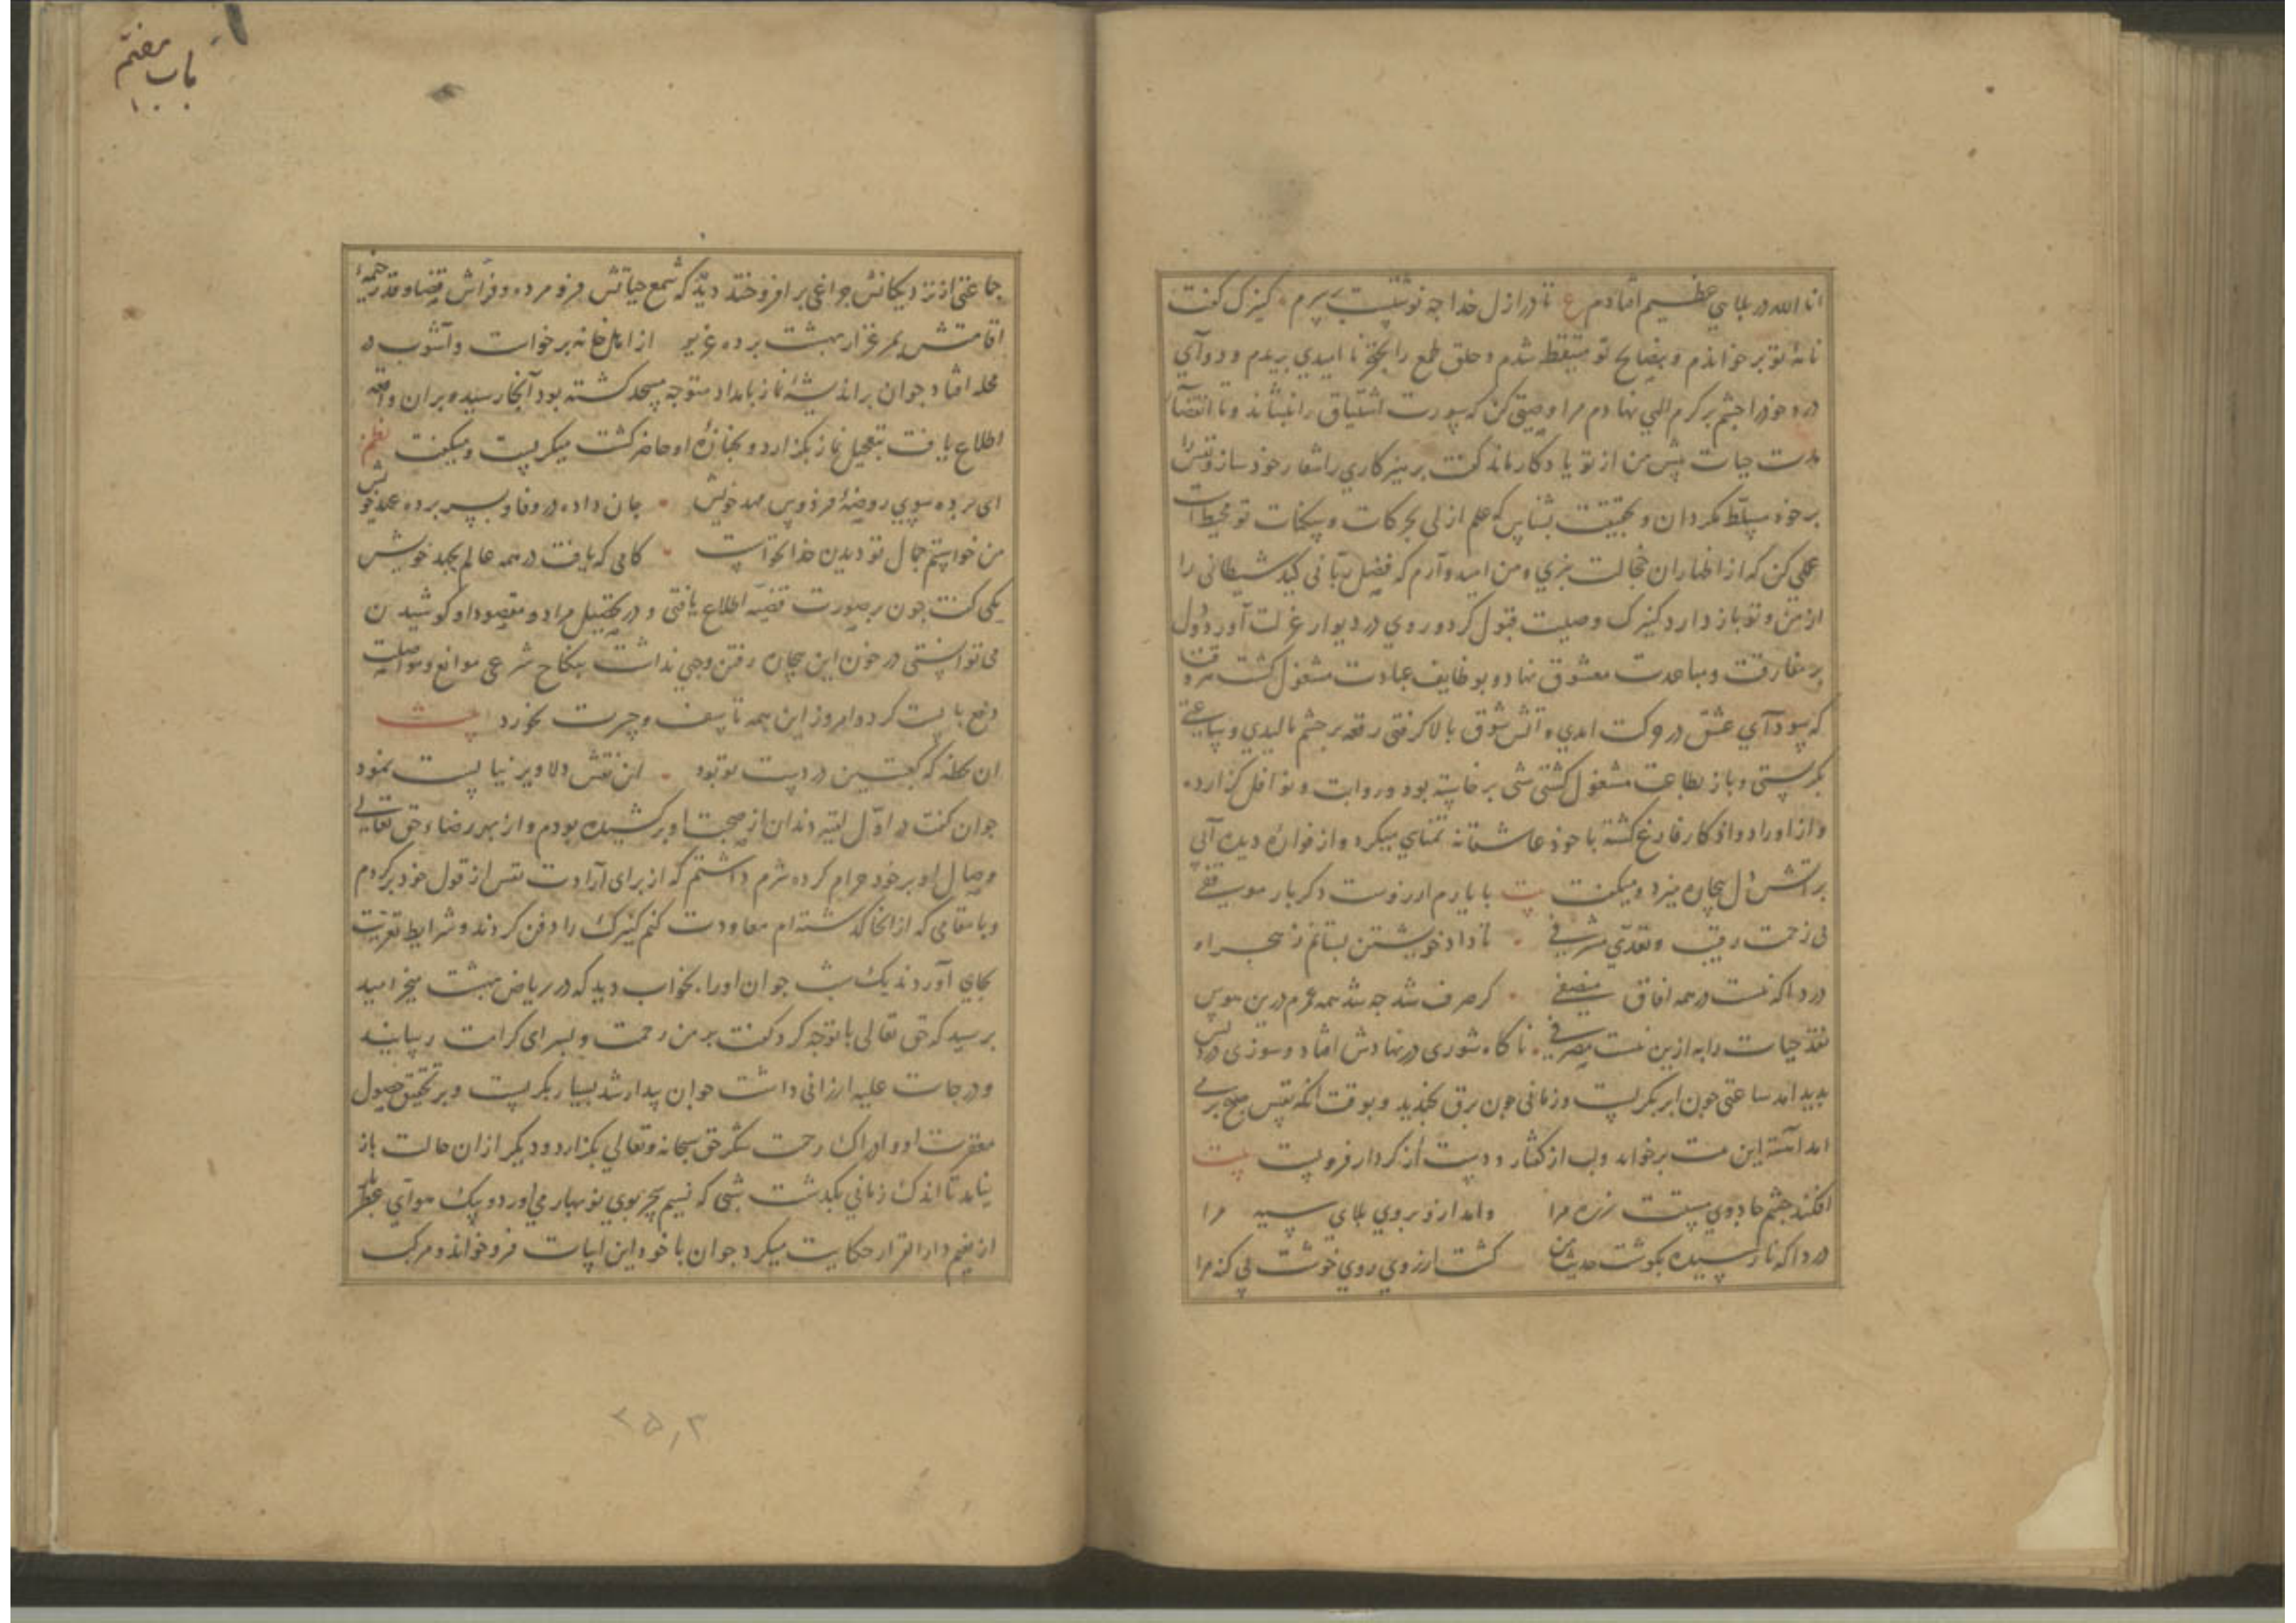 انا الله در بلایی عظیم افتادم ع تا در ازل خدا چه نوشتست بر سرم کنیزک گفت
نامهٔ تو برخواندم و بنصایح تو متیقظ شدم و حلق طمع را بخنجر ناامیدی بریدم و دوآی
درد خود را چشم بر کرم الهی نهادم مرا وصیتی کن که سورت اشتیاق را بنشاند و تا انقضآء
مدت حیات پیش من از تو یادکار ماند گفت پرهیزکاری را شعار خود ساز و نفس را
بر خود مسلط مکردان و بحقیقت بشناس که علم ازلی بحرکات و سکنات تو محیط است
عملی کن که از اظهار ان خجالت نبری و من امید وآرم که فضل ربانی کید شیطانی را
از من و تو باز دارد کنیزک وصیت قبول کرد و روی در دیوار عزلت آورد و دل
بر مفارقت و مباعدت معشوق نهاد و بوظایف عبادت مشغول کشت هر وقت
که سودآی عشق در حرکت امدی و اتش شوق بالا کرفتی رقعه بر چشم مالیدی و ساعتی
بکریستی و باز بطاعت مشغول کشتی شبی برخاسته بود و روایت و نوافل کزارده
و از اوراد و اذکار فارغ کشته با خود عاشقانه تمنایی میکرد و از فوارهٔ دیده آبی
بر اتش دل بیچاره میزد و میکفت بیت با یارم ارزوست دکر بار موقفی
بی زحمت رقیب و تعدی مشرفی تا داد خویشتن بستانم ز هجر او
دردا که نیست در همه افاق منصفی کر صرف شد چه شد همه عمرم درین هوس
نقد حیات را به ازین نیست مصرفی ناکاه شوری در نهادش افتاد و سوزی در دلش
پدید امد ساعتی چون ابر بکریست و زمانی چون برق بخندید و بوقت انکه نفس صبح بر می
امد آهسته این بیت برخواند و لب از کفتار و دست از کردار فرو بست بیت
افکند چشم جادوی مستت زره مرا وامد از و بروی بلای سیه مرا
دردا که نارسیده بکوشت حدیث من کشت ارزوی روی خوشت بی کنه مرا
باب هفتم
جماعتی از نزدیکانش چراغی برافروختند دید که شمع حیاتش فرو مرده و فراش قضا و قدر خیمهٔ
اقامتش بمرغزار بهشت برده غریو از اهل خانه برخواست و آشوب در
محله افتاد جوان بر اندیشهٔ نماز بامداد متوجه مسجد کشته بود آنجا رسید و بران واقعه
اطلاع یافت بتعجیل نماز بکزارد و بجنازهٔ او حاضر کشت میکریست و میکفت نظم
ای برده سوی روضهٔ فردوس مهد خویش جان داده در وفا و بسر برده عهد خویش
من خواستم جمال تو دیدن خدا نخواست کامی که یافت در همه عالم بجهد خویش
یکی گفت چون بر صورت قضیه اطلاع یافتی و در تحصیل مراد و مقصود او کوشیدن
می توانستی در خون این بیچاره رفتن وجهی نداشت بنکاح شرعی موانع مواصلت
دفع بایست کرد و امروز این همه تاسف و حسرت نخورد بیت
ان لحظه که کعبتین در دست تو بود این نقش دلاویز نبایست نمود
جوان کفت در اول لقیه دندان از صحبت او برکشیده بودم و از بهر رضاء حق تعالی
وصال او بر خود حرام کرده شرم داشتم که از برای آرادت نفس از قول خود برکردم
و با مقامی که از انجا کذشته ام معاودت کنم کنیزک را دفن کردند و شرایط تعزیت
بجای آوردند یک شب جوان او را بخواب دید که در ریاض بهشت میخرامید
پرسید که حق تعالی با تو چه کرد کفت بر من رحمت و بسرای کرامت رسانید
و درجات علیه ارزانی داشت جوان بیدار شد بسیار بکریست و بر تحقیق حصول
مغفرت او و ادراک رحمت شکر حق سبحانه و تعالی بکزارد و دیکر از ان حالت باز
نیامد تا اندک زمانی بکذشت شبی که نسیم سحر بوی نوبهار می آورد و پیک هوآی عطر
از نعیم دارالقرار حکایت میکرد جوان با خود این ابیات فرو خواند و مرکب